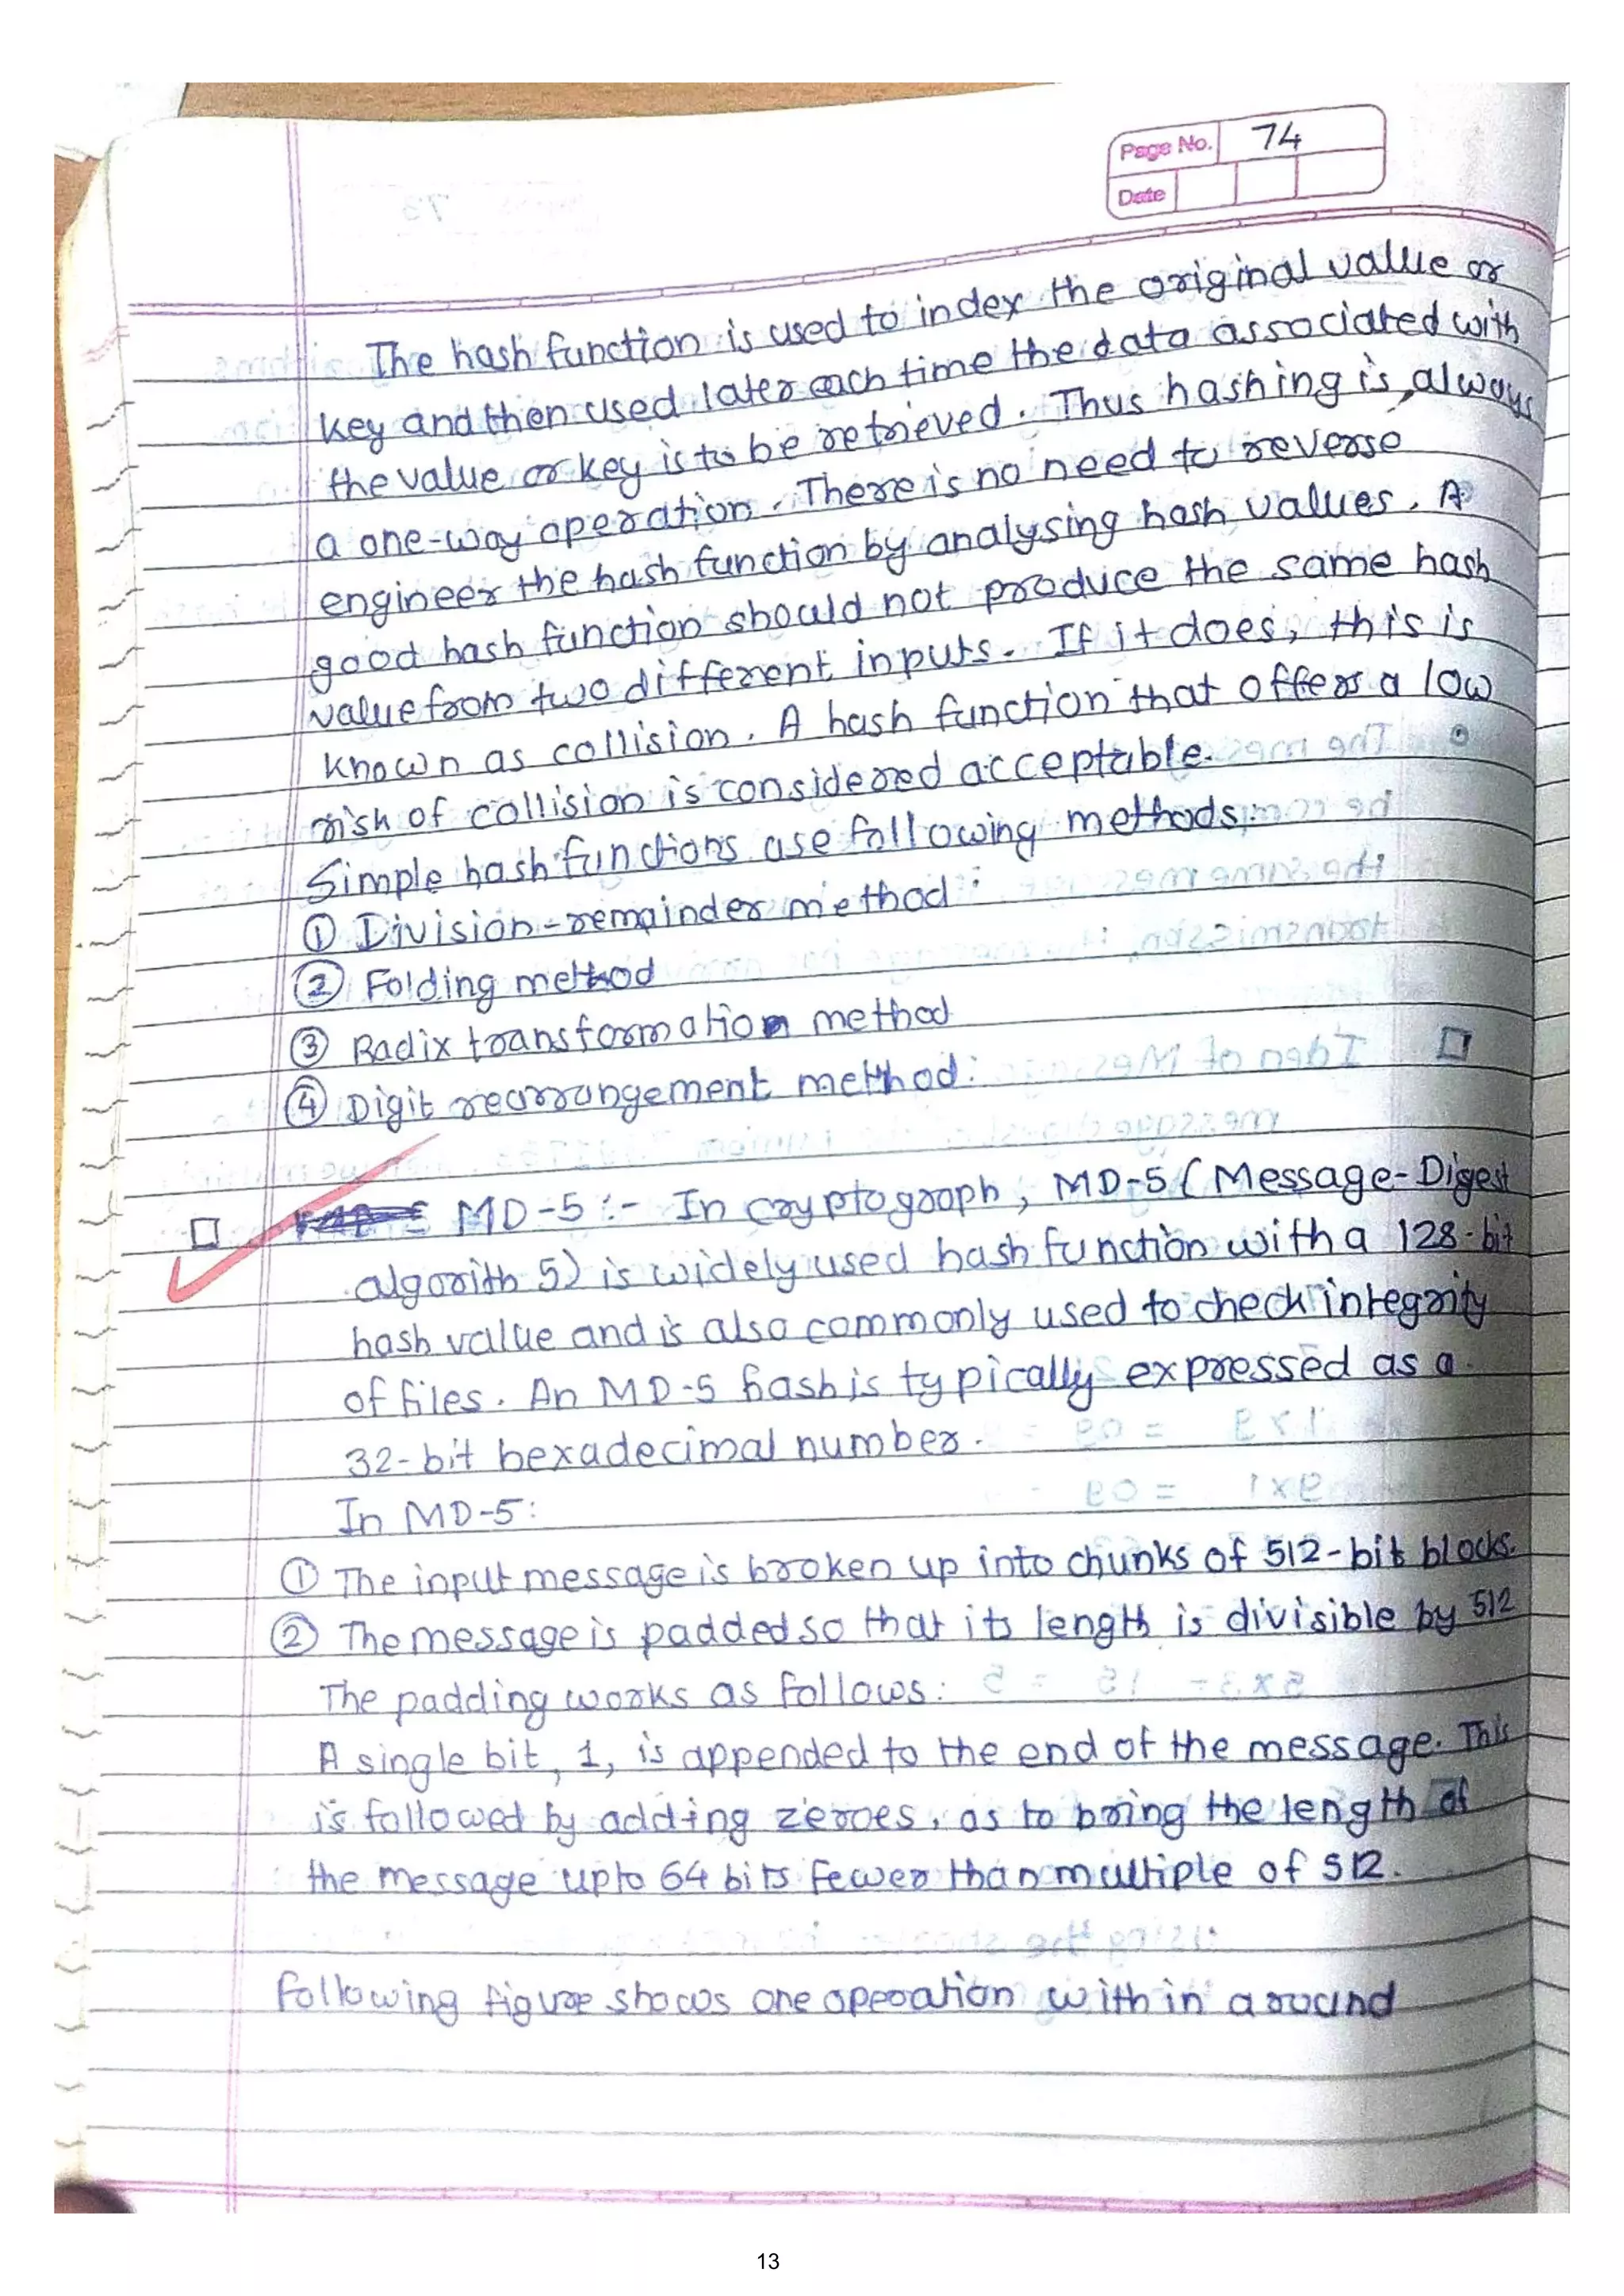 Page No. 74
Date
The hash function is used to index the original value or
key and then used later each time the data associated with
the value or key is to be retrieved. Thus hashing is always
a one-way operation. There is no need to reverse
engineer the hash function by analysing hash values. A
good hash function should not produce the same hash
value from two different inputs. If it does, this is
known as collision. A hash function that offers a low
risk of collision is considered acceptable.
Simple hash functions use following methods:
① Division-remainder method:
② Folding method
③ Radix transformation method
④ Digit rearrangement method:
MD-5 :- In cryptograph, MD-5 (Message-Digest
algorith 5) is widely used hash function with a 128-bit
hash value and is also commonly used to check integrity
of files. An MD-5 hash is typically expressed as a
32-bit hexadecimal number.
In MD-5:
① The input message is broken up into chunks of 512-bit blocks.
② The message is padded so that its length is divisible by 512
The padding works as follows:
A single bit, 1, is appended to the end of the message. This
is followed by adding zeroes, as to bring the length of
the message upto 64 bits fewer than multiple of 512.
Following figure shows one operation within a round
13